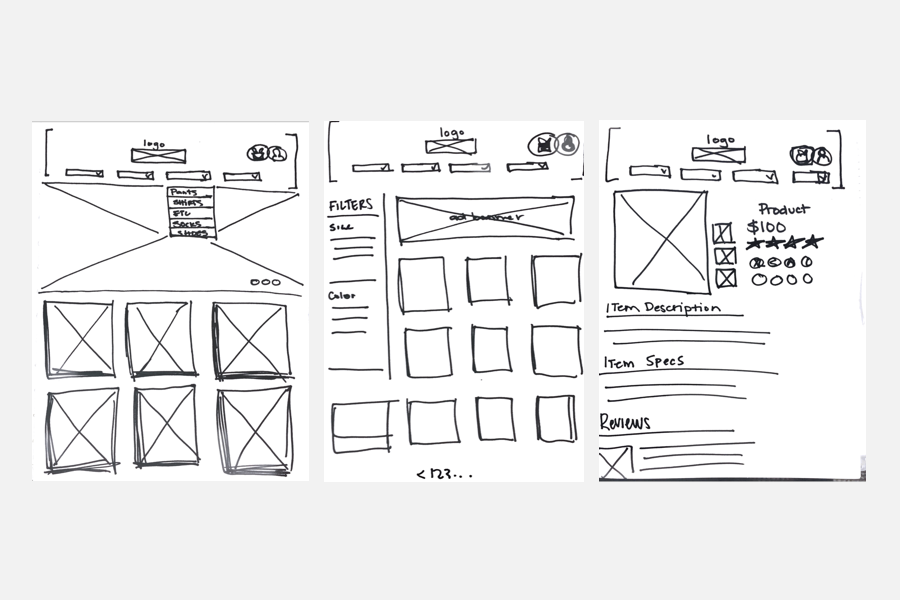 logo
Pants
Shirts
Etc
Socks
Shoes
logo
FILTERS
Size
ad banner
Color
< 123...
logo
Product
$100
Item Description
Item Specs
Reviews